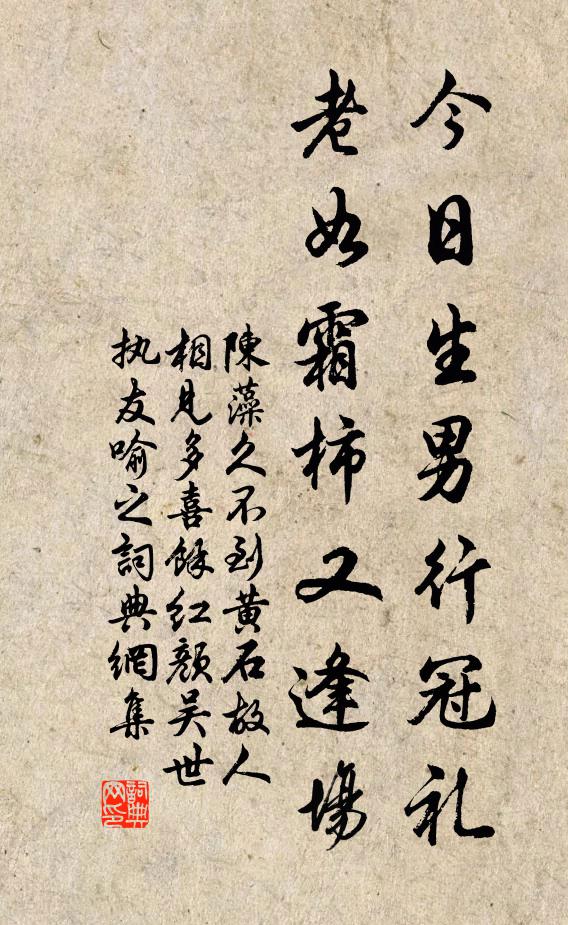 今日生男行冠礼
老如霜柿又逢場
陳藻久不到黄石故人
相見多喜餘红顏吴世
执友喻之詞典網集
詞典
网印